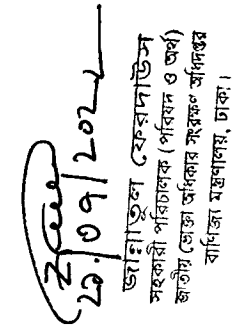 ২১/০৭/২০২
জান্নাতুল ফেরদাউস
সহকারী পরিচালক (পরিষদ ও অর্থ)
জাতীয় ভোক্তা অধিকার সংরক্ষণ অধিদপ্তর
বাণিজ্য মন্ত্রণালয়, ঢাকা।